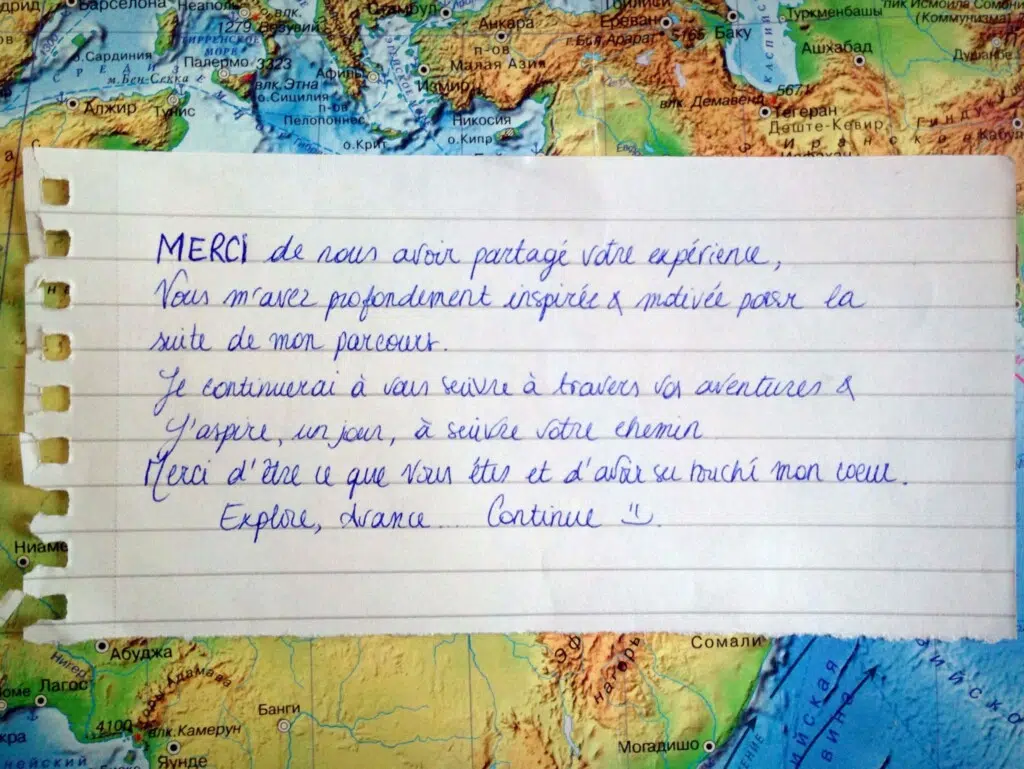 дрид
Барселона
Неаполь
влк.
1279 Везувий
Стамбул
Анкара
Тбилиси
Ереван
г.Бол.Арарат 5165
Баку
КАСПИЙС
Туркменбашы
пик Исмоила Сомони
(Коммунизма)
о.Сардиния
ТИРРЕНСКОЕ
МОРЕ
п-ов
Малая Азия
Ашхабад
Душанбе
С Р Е Д
м.Бен-Секка
Палермо 3323
влк.Этна
о.Сицилия
Афины
Измир
5671
влк. Демавенд
Тегеран
Алжир
Тунис
п-ов
Пелопоннес
Никосия
о.Кипр
Деште-Кевир
Гинду
Кабул
о.Крит
Иранское
Исфахан
MERCI de nous avoir partagé votre expérience,
Vous m'avez profondement inspirée & motivée pour la
suite de mon parcours.
Je continuerai à vous suivre à travers vos aventures &
J'aspire, un jour, à suivre votre chemin
Merci d'être ce que vous êtes et d'avoir su touché mon coeur.
Explore, Avance... Continue
Ниаме
Абуджа
Сомали
Нигер
Лагос
горы Адамава
4100
влк.Камерун
Банги
Могадишо
Яунде